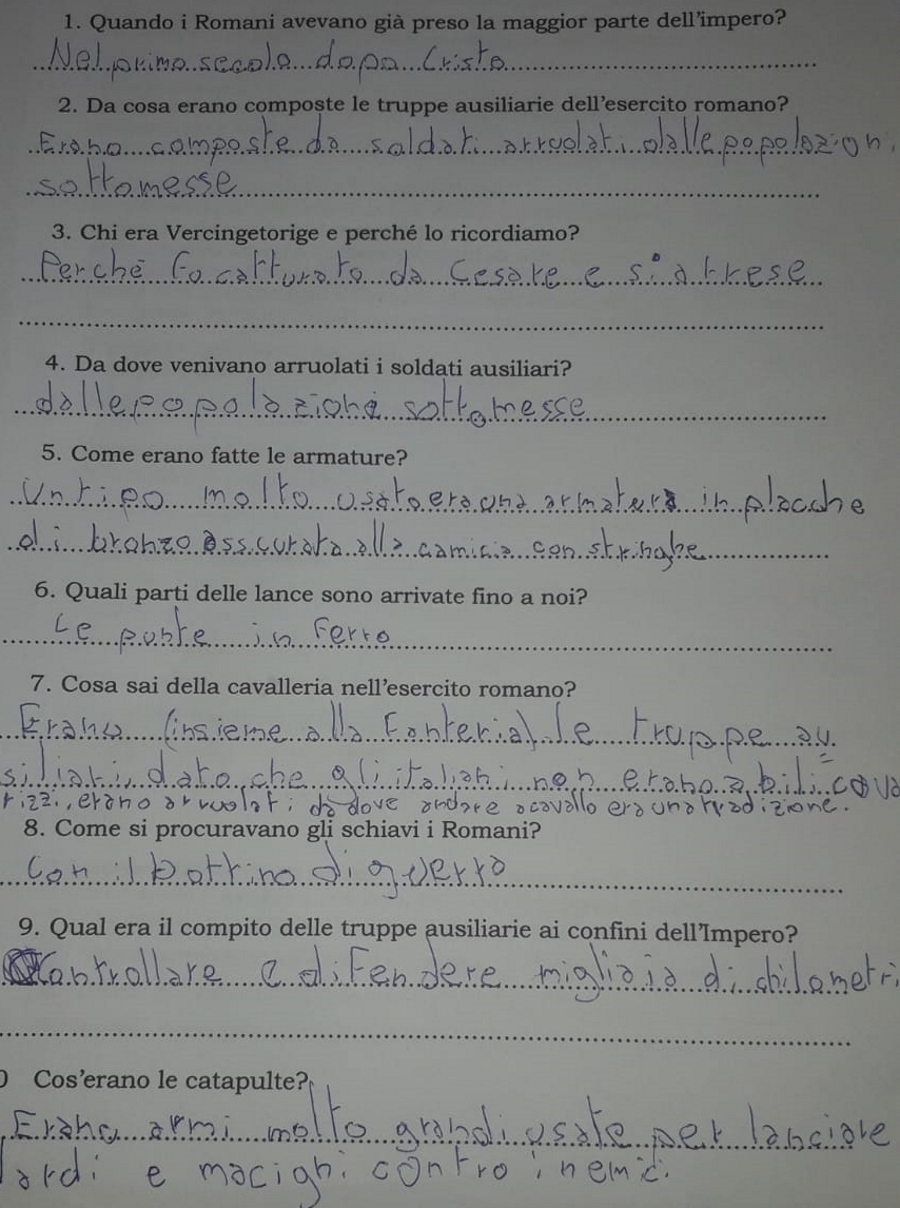 1. Quando i Romani avevano già preso la maggior parte dell'impero?
Nel primo secolo dopo Cristo
2. Da cosa erano composte le truppe ausiliarie dell'esercito romano?
Erano composte da soldati arruolati dalle popolazioni
sottomesse
3. Chi era Vercingetorige e perché lo ricordiamo?
Perché fo catturato da Cesare e si arrese
4. Da dove venivano arruolati i soldati ausiliari?
dalle popolazioni sottomesse
5. Come erano fatte le armature?
Un tipo molto usato era una armatura in placche
di bronzo assicurata alla camicia con stringhe
6. Quali parti delle lance sono arrivate fino a noi?
Le punte in ferro
7. Cosa sai della cavalleria nell'esercito romano?
Erano (insieme alla fanteria) le truppe au=
siliari, dato che gli italiani non erano abili cava
rizzi, erano arruolati da dove andare a cavallo era una tradizione.
8. Come si procuravano gli schiavi i Romani?
Con il bottino di guerra
9. Qual era il compito delle truppe ausiliarie ai confini dell'Impero?
Controllare e difendere migliaia di chilometri
0 Cos'erano le catapulte?
Erano armi molto grandi usate per lanciare
dardi e macigni contro i nemici.